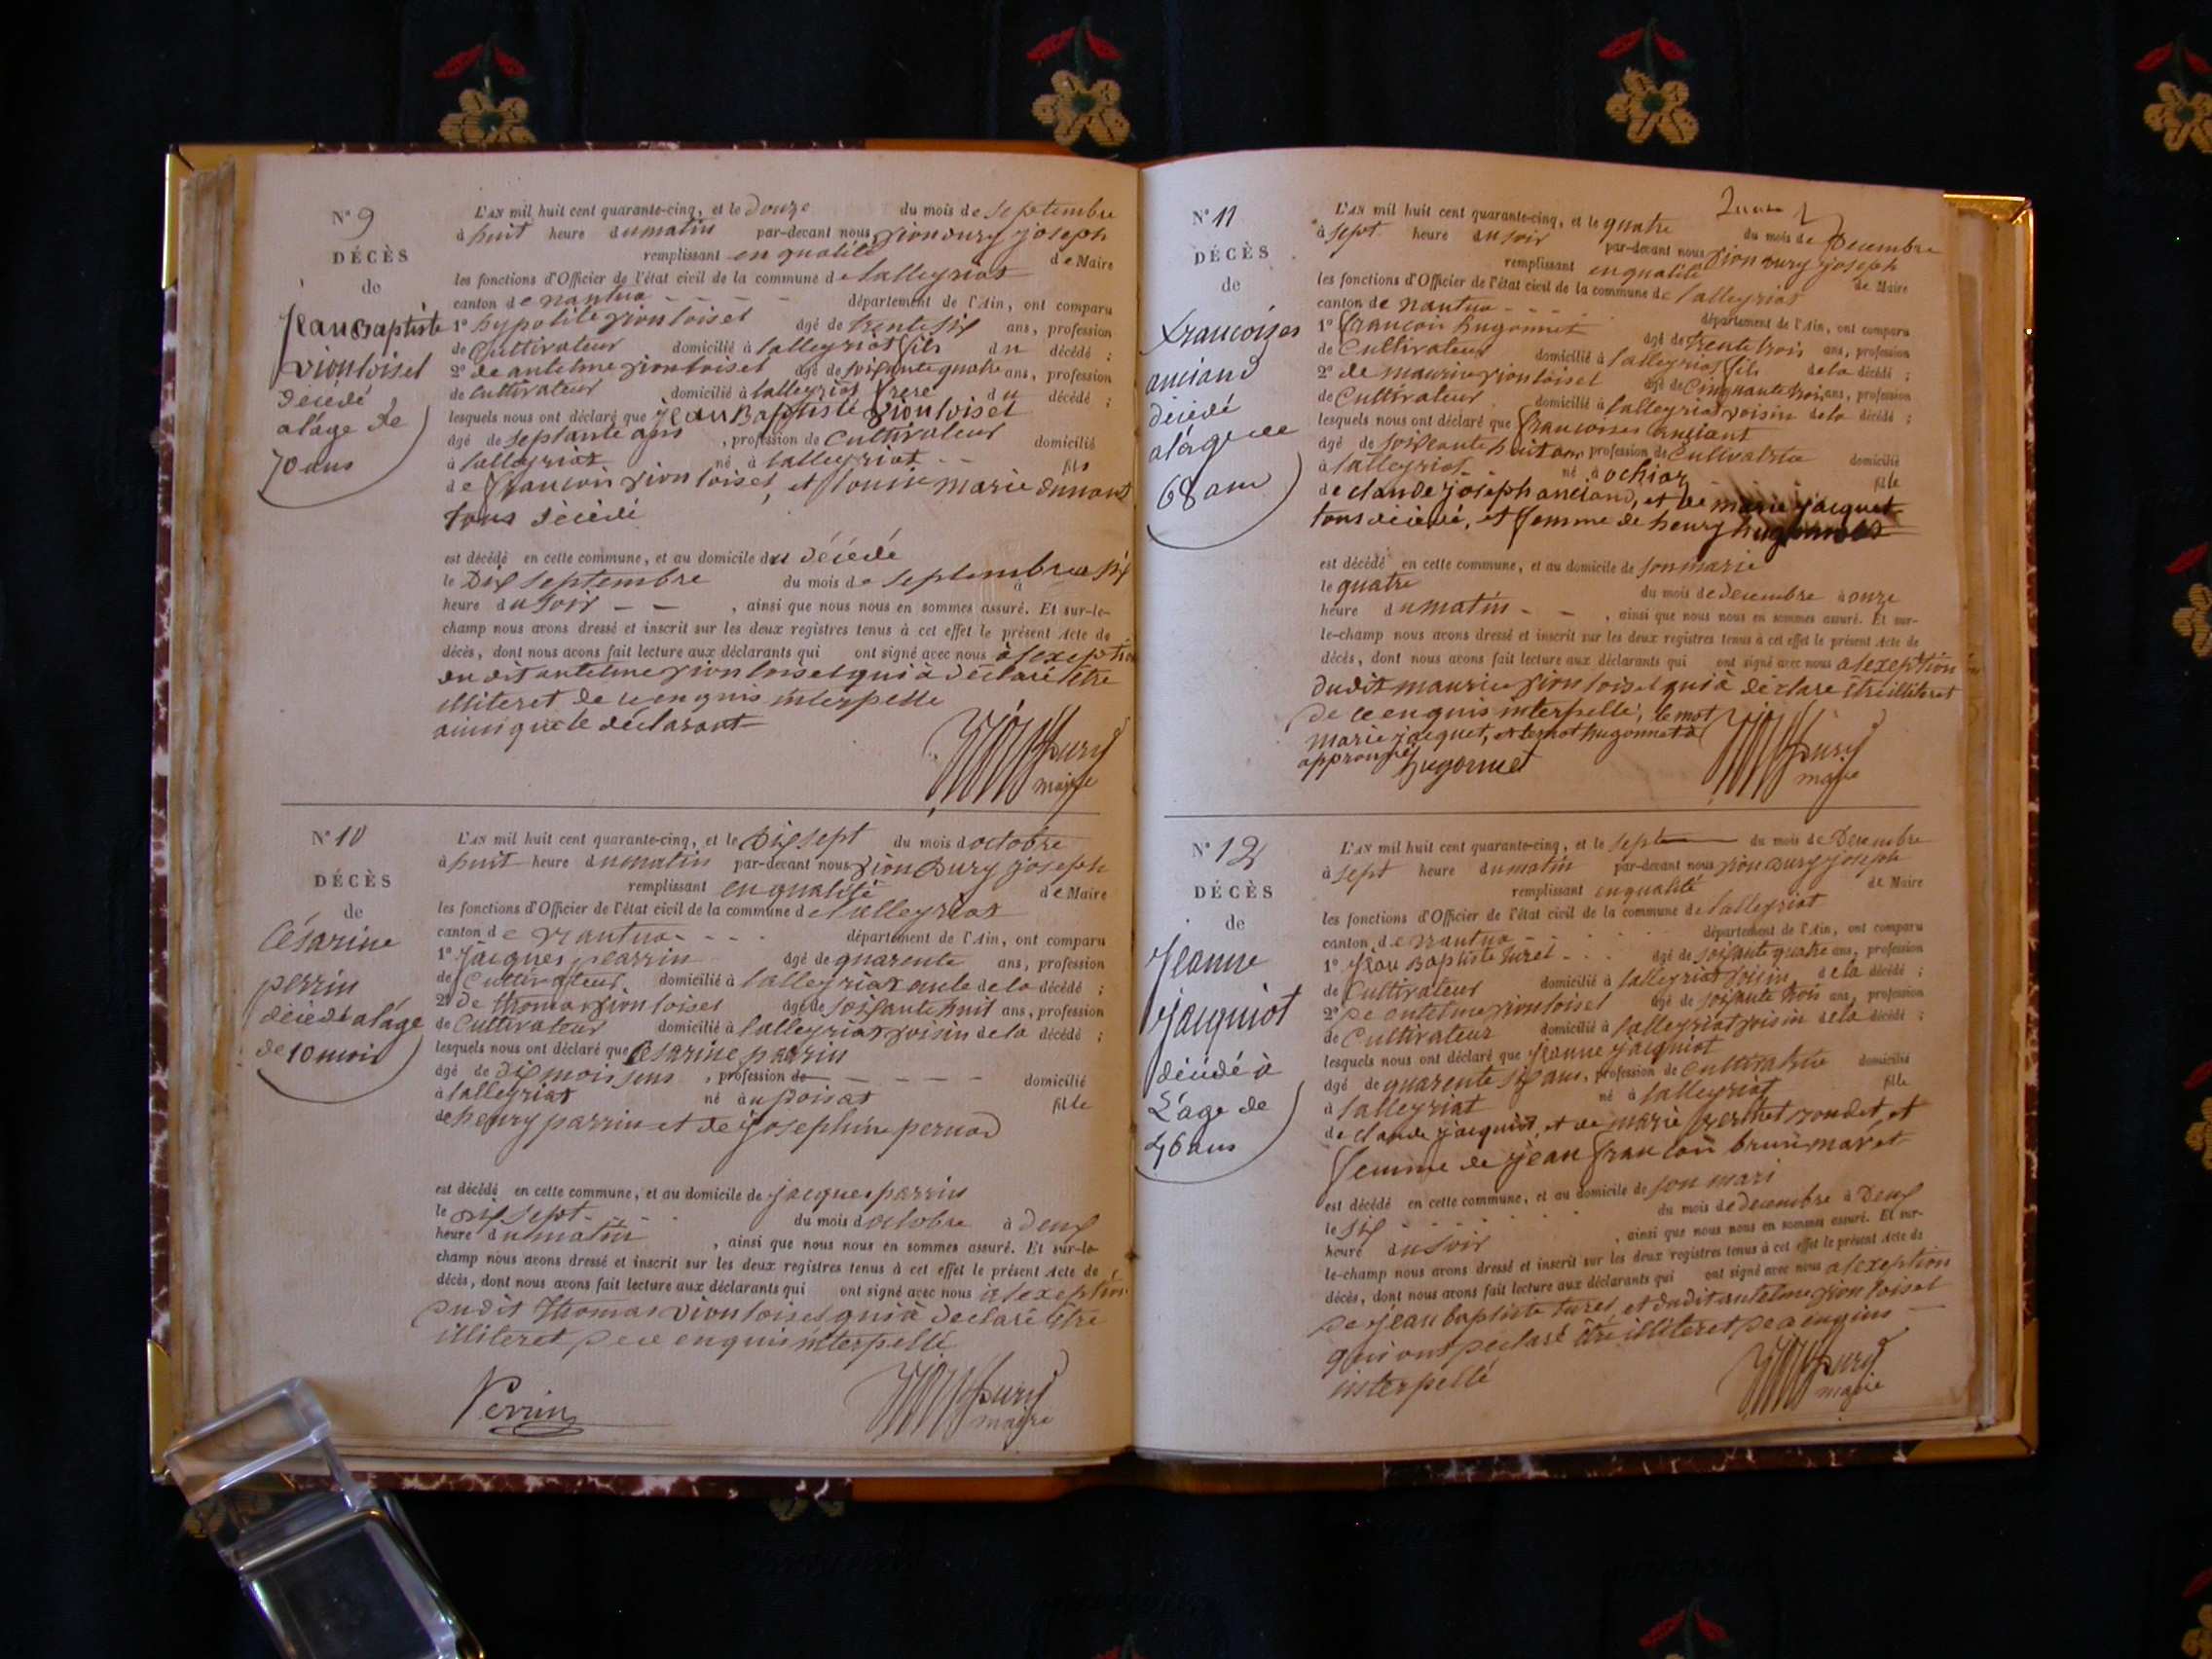 N° 9
DÉCÈS
de
Jean Baptiste
vion loisel
décédé
a lâge de
70 ans
L'AN mil huit cent quarante-cinq, et le Douze du mois de septembre
à huit heure du matin par-devant nous vion dury joseph
remplissant en qualité de Maire
les fonctions d'Officier de l'état civil de la commune de lalleyriat
canton de nantua département de l'Ain, ont comparu
1° hypolite vion loisel âgé de trente six ans, profession
de Cultivateur domicilié à lalleyriat fils du décédé ;
2° de antelme vion loisel âgé de soixante quatre ans, profession
de cultivateur domicilié à lalleyriat frere du décédé ;
lesquels nous ont déclaré que jean Baptiste vion loisel
âgé de septante ans , profession de Cultivateur domicilié
à lalleyriat né à lalleyriat fils
de francois vion loisel, et louise marie dunant
tous décédé
est décédé en cette commune, et au domicile du décédé
le Dix septembre du mois de septembre à six
heure du soir , ainsi que nous nous en sommes assuré. Et sur-le-
champ nous avons dressé et inscrit sur les deux registres tenus à cet effet le présent Acte de
décès, dont nous avons fait lecture aux déclarants qui ont signé avec nous à lexeption
du dit antelme vion loisel qui à déclaré être
illiteret de ce enquis interpelle
ainsi que le déclarant
vion Dury
maire
N° 10
DÉCÈS
de
Césarine
perrin
décédé a lâge
de 10 mois
L'AN mil huit cent quarante-cinq, et le Dix sept du mois doctobre
à huit heure du matin par-devant nous vion Dury joseph
remplissant en qualité de Maire
les fonctions d'Officier de l'état civil de la commune de lalleyriat
canton de nantua département de l'Ain, ont comparu
1° Jacques perrin âgé de quarente ans, profession
de Cultivateur domicilié à lalleyriat oncle de la décédé ;
2° de thomas vion loisel âgé de soixante huit ans, profession
de Cultivateur domicilié à lalleyriat voisin de la décédé ;
lesquels nous ont déclaré que Cesarine parrin
âgé de dix mois sans , profession de domicilié
à lalleyriat né à u poizat fille
de henry parrin et de josephine pernod
est décédé en cette commune, et au domicile de jacques parrin
le dix sept du mois doctobre à deux
heure du matin , ainsi que nous nous en sommes assuré. Et sur-le-
champ nous avons dressé et inscrit sur les deux registres tenus à cet effet le présent Acte de
décès, dont nous avons fait lecture aux déclarants qui ont signé avec nous à lexeption
dudit thomas vion loisel qui à declaré être
illiteret de ce enquis interpellé
Perrin
vion Dury
maire
N° 11
DÉCÈS
de
francoises
anciand
décédé
a lâge de
68 ans
L'AN mil huit cent quarante-cinq, et le quatre du mois de Decembre
à sept heure du soir par-devant nous vion Dury joseph
remplissant en qualité de Maire
les fonctions d'Officier de l'état civil de la commune de lalleyriat
canton de nantua département de l'Ain, ont comparu
1° francois hugonnet âgé de trente trois ans, profession
de Cultivateur domicilié à lalleyriat fils de la décédé ;
2° de maurice vion loisel âgé de Cinquante trois ans, profession
de Cultivateur domicilié à lalleyriat voisin de la décédé ;
lesquels nous ont déclaré que francoises anciant
âgé de soixante huit ans, profession de Cultivatrice domicilié
à lalleyriat né à ochiaz fille
de claude joseph anciand, et de marie jacquet
tous décédé, et femme de henry hugonnet
est décédé en cette commune, et au domicile de son marie
le quatre du mois de decembre à onze
heure du matin , ainsi que nous nous en sommes assuré. Et sur-
le-champ nous avons dressé et inscrit sur les deux registres tenus à cet effet le présent Acte de
décès, dont nous avons fait lecture aux déclarants qui ont signé avec nous à lexeption
dudit maurice vion loisel qui à déclaré être illiteret
de ce enquis interpelle, le mot
marie jacquet, et le mot hugonnet
approuvé hugonnet
vion Dury
maire
N° 12
DÉCÈS
de
Jeanne
jacquiot
décédé à
L'age de
46 ans
L'AN mil huit cent quarante-cinq, et le sept du mois de Decembre
à sept heure du matin par-devant nous vion Dury joseph
remplissant en qualité de Maire
les fonctions d'Officier de l'état civil de la commune de lalleyriat
canton de nantua département de l'Ain, ont comparu
1° Jean Baptiste turel âgé de soixante quatre ans, profession
de Cultivateur domicilié à lalleyriat voisin de la décédé ;
2° de antelme vion loisel âgé de soixante trois ans, profession
de Cultivateur domicilié à lalleyriat voisin de la décédé ;
lesquels nous ont déclaré que jeanne jacquiot
âgé de quarente six ans, profession de cultivatrice domicilié
à lalleyriat né à lalleyriat fille
de claude jacquiot, et de marie rondet, et
femme de jean francois brun maret
est décédé en cette commune, et au domicile de son mari
le six du mois de decembre à Deux
heure du soir , ainsi que nous nous en sommes assuré. Et sur-
le-champ nous avons dressé et inscrit sur les deux registres tenus à cet effet le présent Acte de
décès, dont nous avons fait lecture aux déclarants qui ont signé avec nous à lexeption
de jean baptiste turel et dudit antelme vion loisel
qui ont declaré être illiteret de ce enquis
interpellé
vion Dury
maire